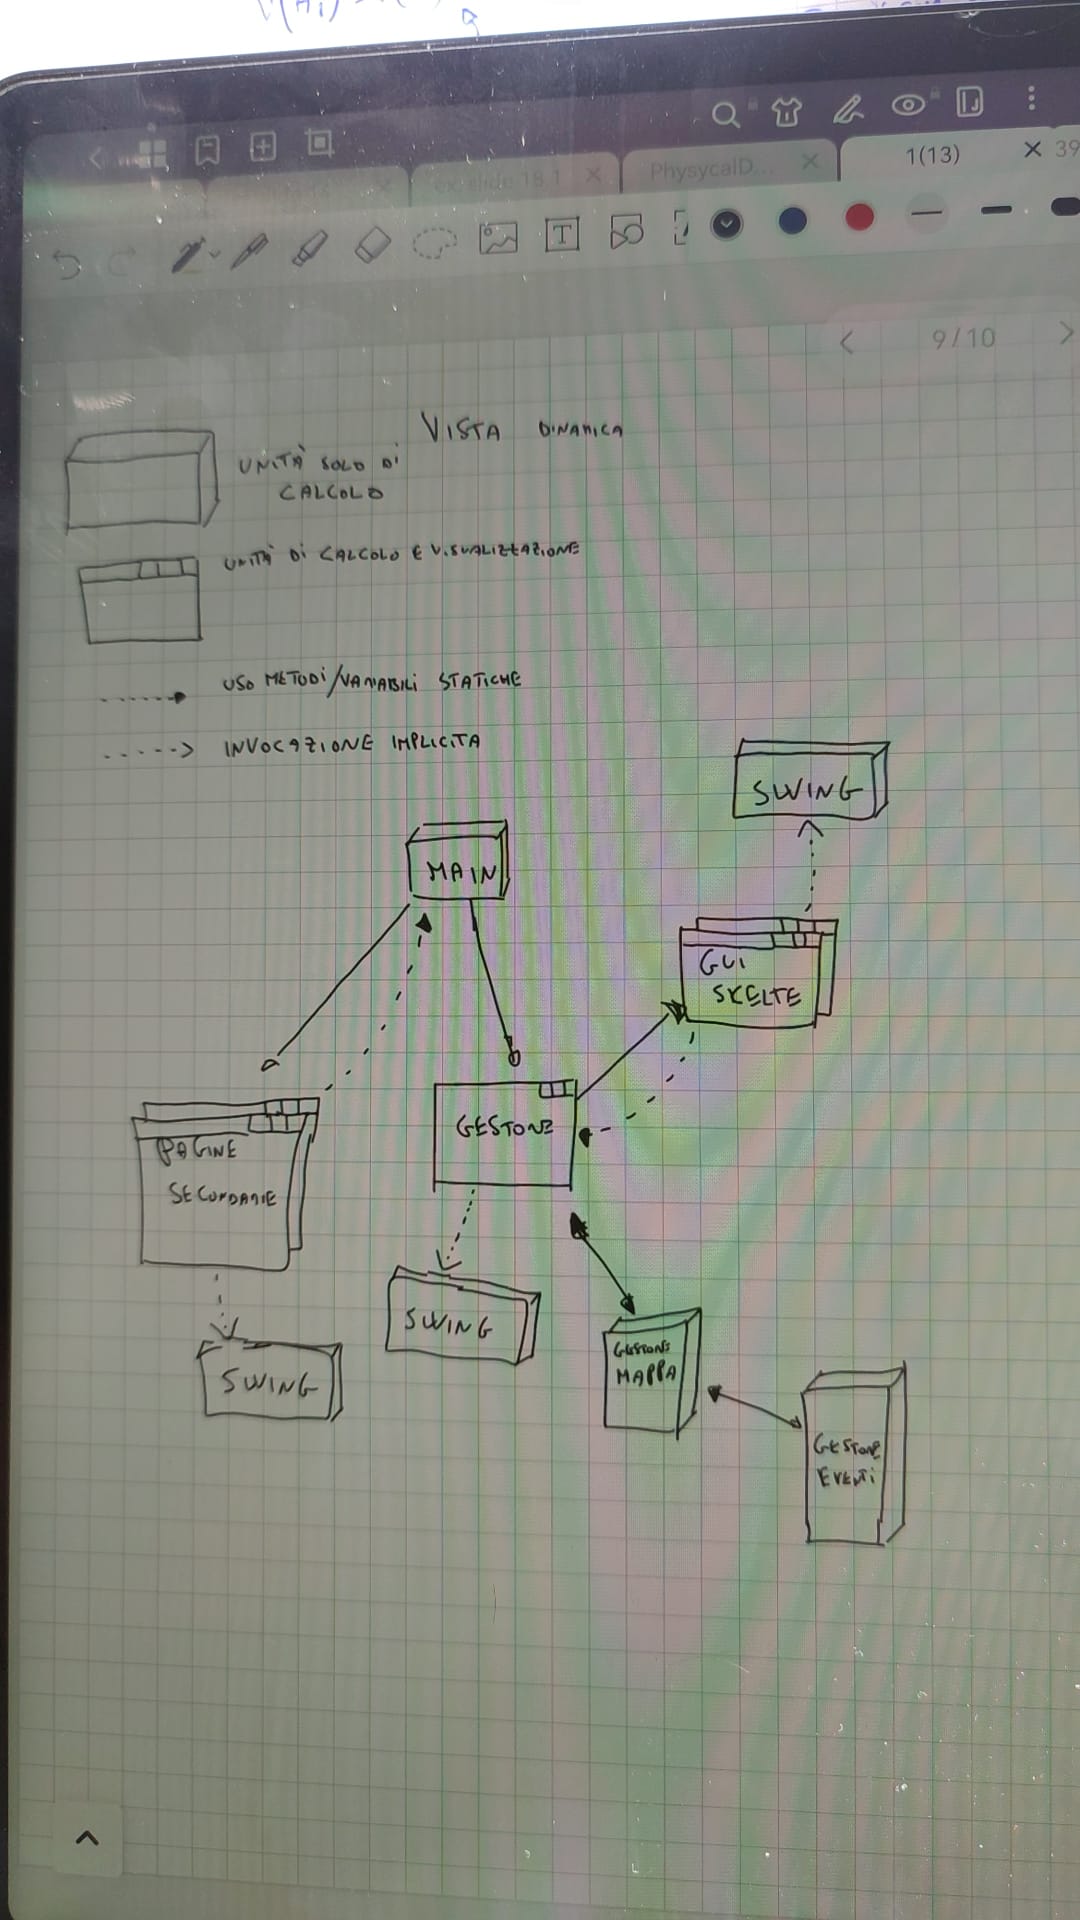 ex slide 18 1
PhysycalD...
1(13)
39
9/10
VISTA DINAMICA
UNITÀ SOLO DI
CALCOLO
UNITÀ DI CALCOLO E VISUALIZZAZIONE
USO METODI/VARIABILI STATICHE
INVOCAZIONE IMPLICITA
SWING
MAIN
GUI
SKELTE
GESTONE
PAGINE
SECONDARIE
SWING
SWING
GESTONE
MAPPA
GESTONE
EVENTI